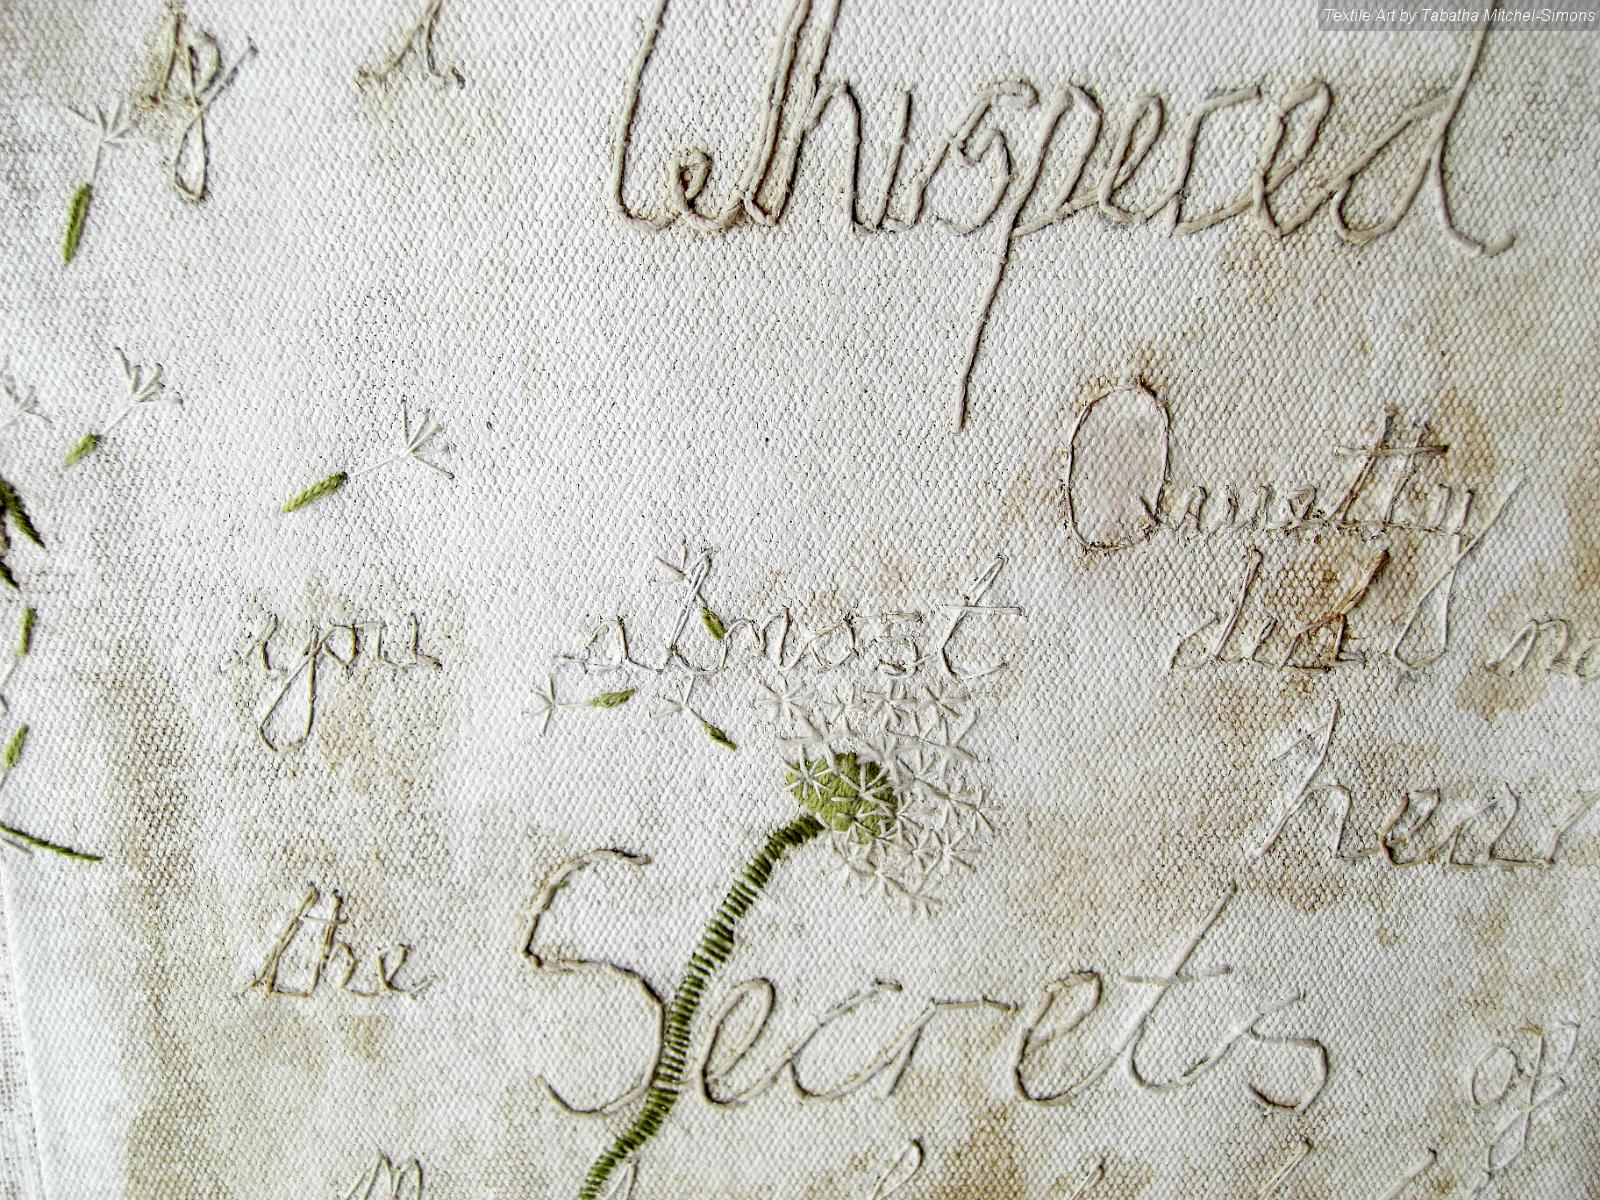 Textile Art by Tabatha Mitchel-Simons
Whispered
Quietly
you almost did
hear
the Secrets of